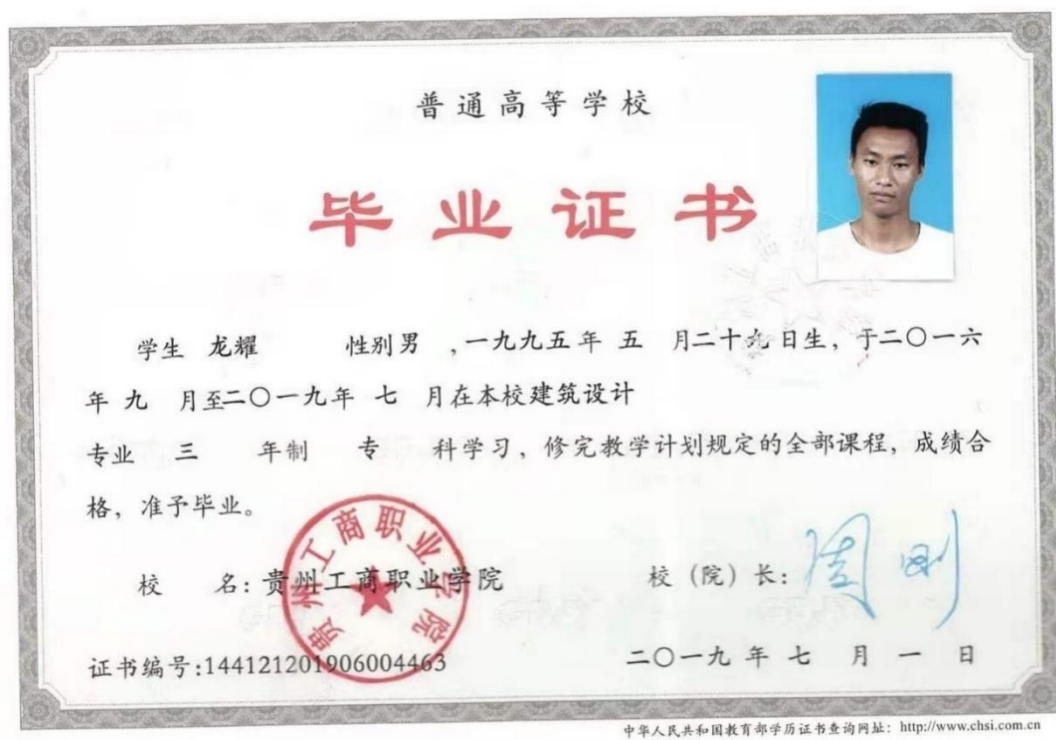 普通高等学校
毕业证书
学生 龙耀 性别男 ,一九九五年 五 月二十九日生，于二〇一六
年 九 月至二〇一九年 七 月在本校建筑设计
专业 三 年制 专 科学习，修完教学计划规定的全部课程，成绩合
格，准予毕业。
校 名：贵州工商职业学院
贵州工商职业学院
校（院）长：周刚
证书编号:144121201906004463
二〇一九 年 七 月 一 日
中华人民共和国教育部学历证书查询网址：http://www.chsi.com.cn